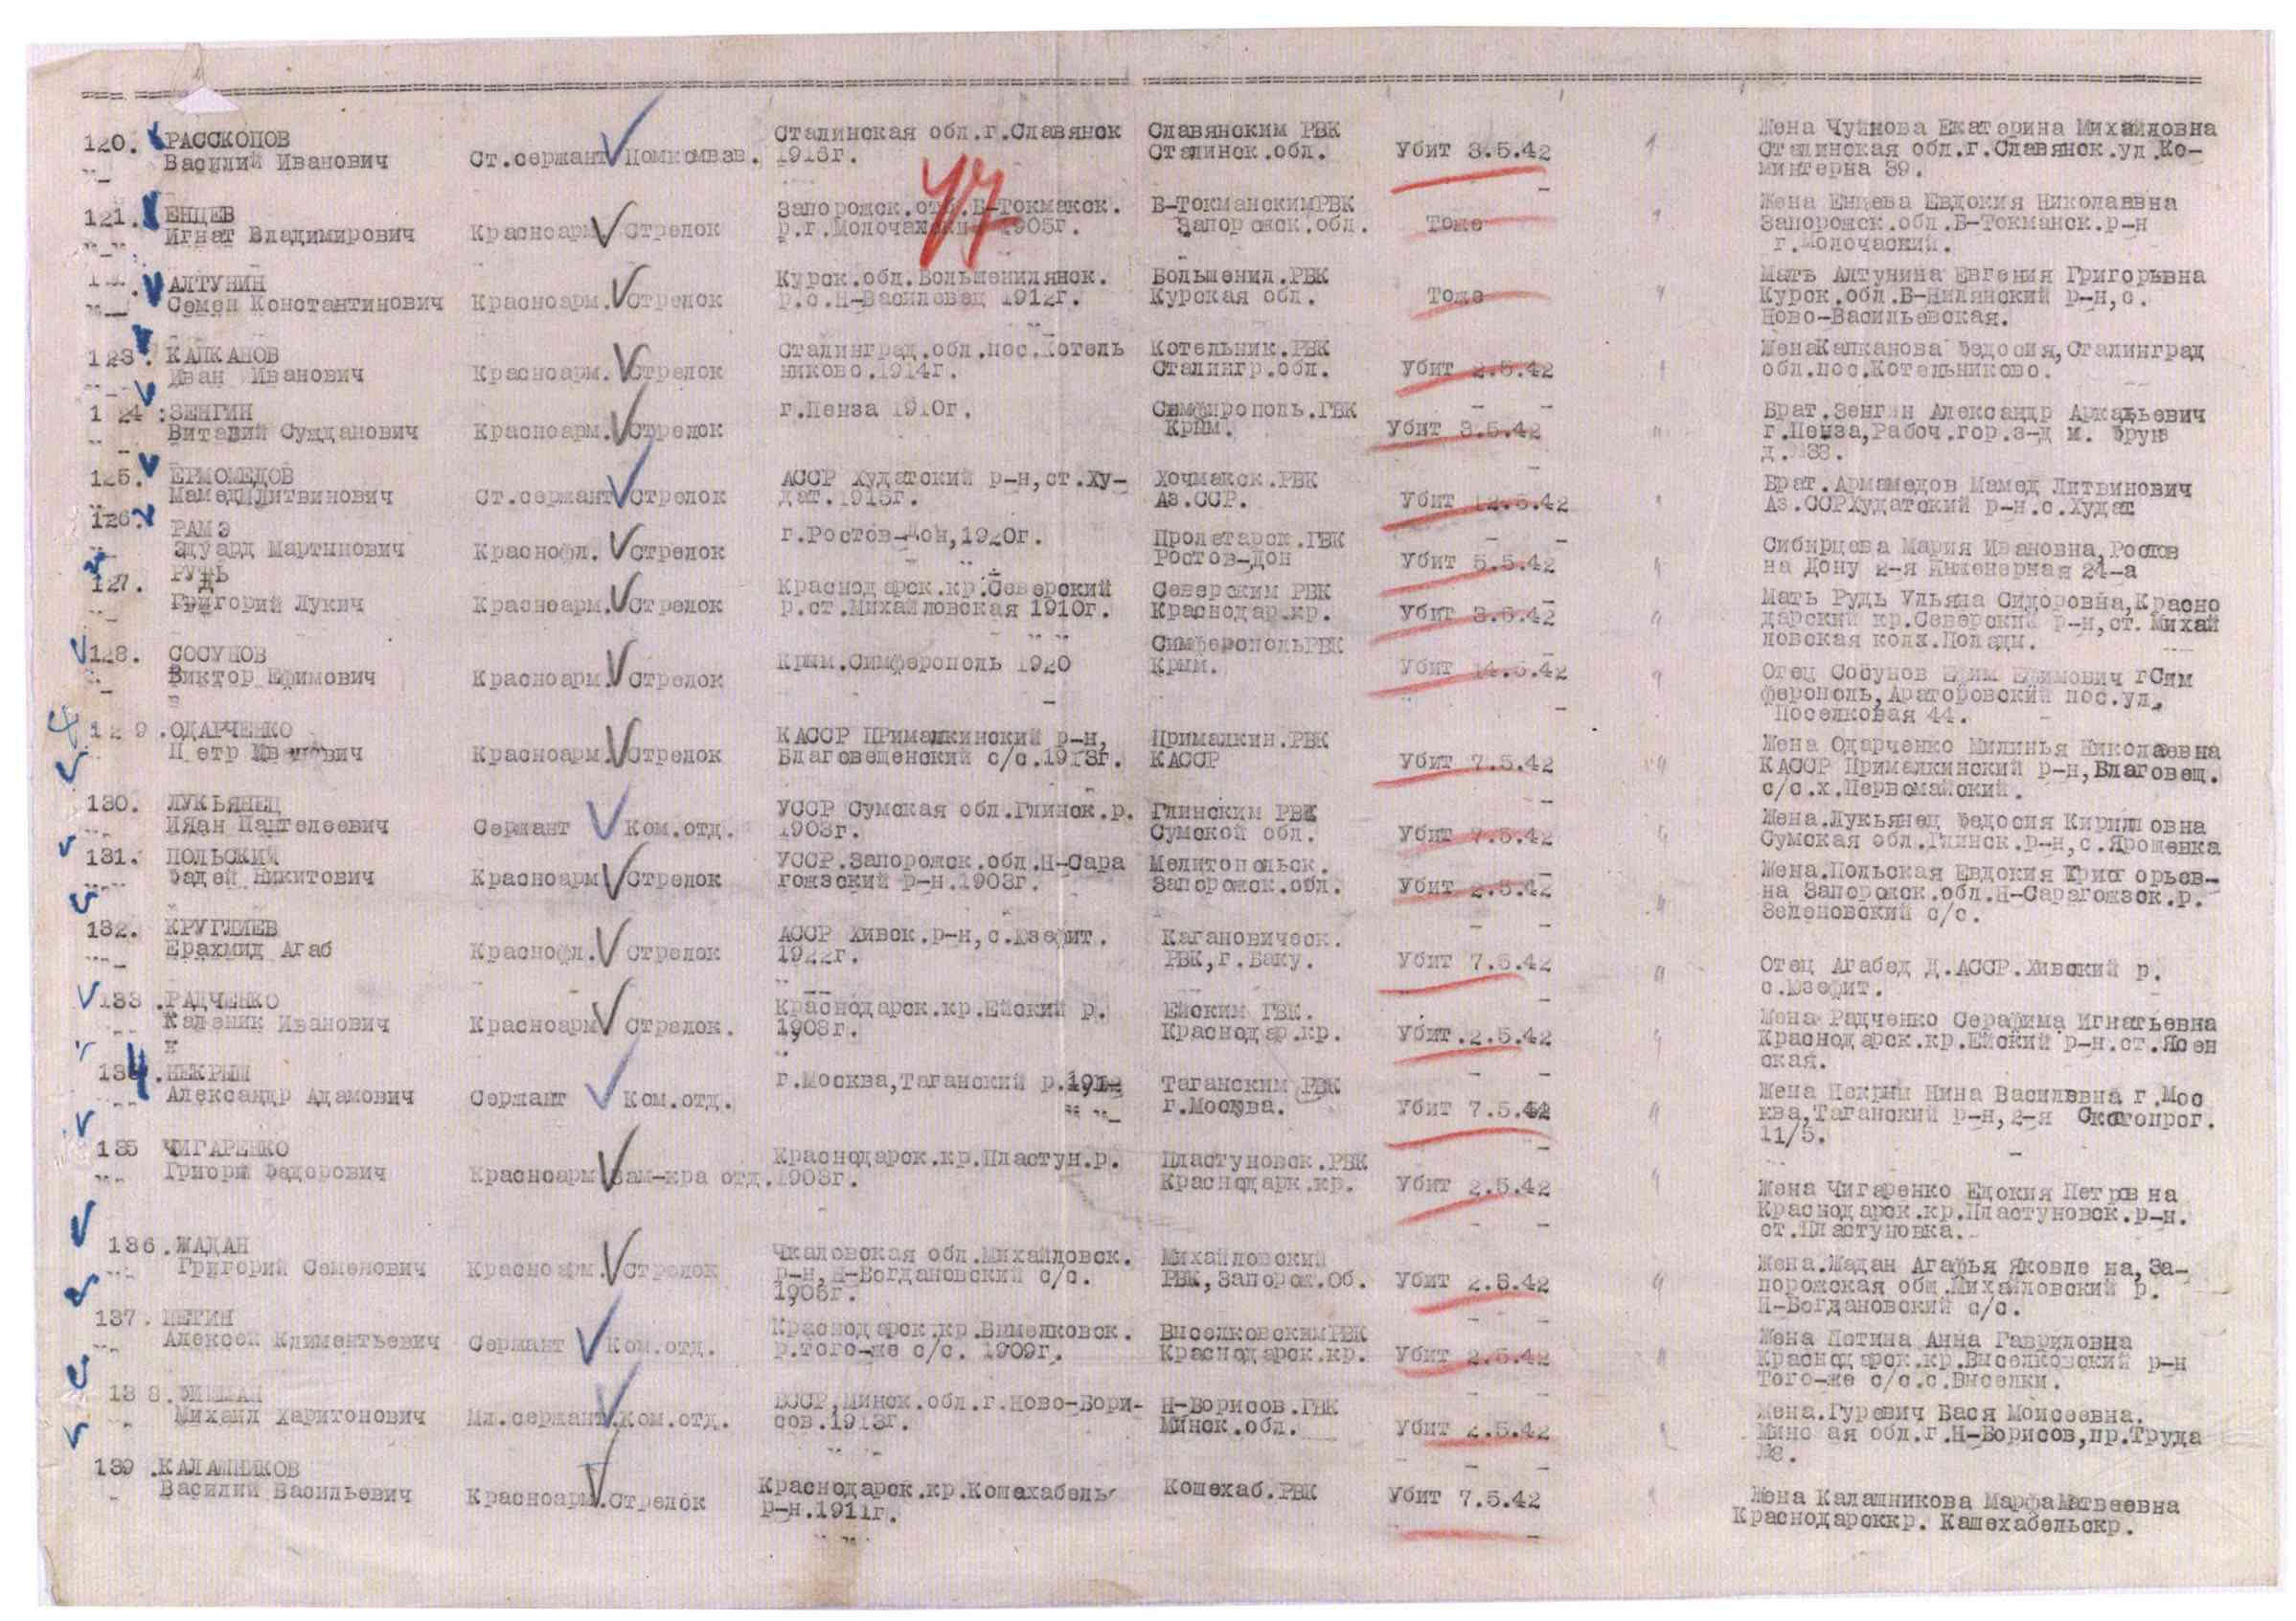 120. РАССКОПОВ
Василий Иванович
Ст.сержант Помкомвзв.
Сталинская обл.г.Славянск
1913г.
Славянским РВК
Сталинск.обл.
Убит 3.5.42
Жена Чуйкова Екатерина Михайловна
Сталинская обл.г.Славянск.ул.Ко-
минтерна 39.
47
121. ЕНЦЕВ
Игнат Владимирович
Красноарм. Стрелок
Запорожск. Б-Токмакск.
1905г.
Б-ТокманскимРВК
Запорожск.обл.
Тоже
Жена Енцева Евдокия Николаввна
Запорожск.обл.Б-Токманск.р-н
г.Молочаский.
АЛТУНИН
Семен Константинович
Красноарм. Стрелок
Курск.обл.Большенилянск.
р.с.Н-Василовец 1912г.
Большенил.РВК
Курская обл.
Тоже
Мать Алтунина Евгения Григорьвна
Курск.обл.Б-Нилянский р-н,с.
Ново-Васильевская.
123. КАПКАНОВ
Иван Иванович
Красноарм. Стрелок
Сталинград.обл.пос.Котель
никово.1914г.
Котельник.РВК
Сталингр.обл.
Убит 2.5.42
ЖенаКапканова Федосия,Сталинград
обл.пос.Котельниково.
124 :ЗЕНГИН
Виталий
Красноарм. Стрелок
г.Пенза 1910г.
Симфирополь.ГВК
Крым.
Убит 3.5.42
Брат.Зенгин Александр Аркадьевич
г.Пенза,Рабоч.гор.з-д
125. ЕРМОМЕДОВ
Мамед Литвинович
Ст.сержант Стрелок
АССР Худатский р-н,ст.Ху-
дат.1915г.
Хочмакск.РВК
Аз.ССР.
Убит 12.5.42
Брат.Армамедов Мамед Литвинович
Аз.ССРХудатский р-н.с.Худат
126. РАМЭ
Эдуард Мартинович
Краснофл. Стрелок
г.Ростов-Дон,1920г.
Пролетарск.ГВК
Ростов-Дон
Убит 5.5.42
Сибирцева Мария Ивановна,Ростов
на Дону 2-я Инженерная 24-а
127. РУДЬ
Григорий Лукич
Красноарм. Стрелок
Краснодарск.кр.Северский
р.ст.Михайловская 1910г.
Северским РВК
Краснодар.кр.
Убит 3.5.42
Мать Рудь Ульяна Сидоровна,Красно
дарский кр.Северский р-н,ст.Михай
ловская колх.Полади.
128. СОСУНОВ
Виктор Ефимович
Красноарм. Стрелок
Крым.Симферополь 1920
СимферопольРВК
Крым.
Убит 14.5.42
Отец Сосунов Ефим Ефимович гСим
ферополь,Араторовский пос.ул.
Поселковая 44.
129.ОДАРЧЕНКО
Петр Иванович
Красноарм. Стрелок
КАССР Прималкинский р-н,
Благовещенский с/с.1913г.
Прималкин.РВК
КАССР
Убит 7.5.42
Жена Одарченко Милинья Николаевна
КАССР Прималкинский р-н,Благовещ.
с/с.х.Первомайский.
130. ЛУКЬЯНЕЦ
Ияан Пантелеевич
Сержант Ком.отд.
УССР Сумская обл.Глинск.р.
1903г.
Глинским РВК
Сумской обл.
Убит 7.5.42
Жена.Лукьянец Федосия Кирилловна
Сумская обл.Глинск.р-н,с.Ярошевка
131. ПОЛЬСКИЙ
Фадей Никитович
Красноарм Стрелок
УССР.Запорожск.обл.Н-Сара
гожзский р-н.1903г.
Мелитопольск.
Запорожск.обл.
Убит 2.5.42
Жена.Польская Евдокия Григорьев-
на Запорожск.обл.Н-Сарагожзск.р.
Зеленовский с/с.
132. КРУГЛИЕВ
Ерахмид Агаб
Краснофл. Стрелок
АССР Хивск.р-н,с.Юзефит.
1922г.
Кагановическ.
РВК,г.Баку.
Убит 7.5.42
Отец Агабед Д.АССР.Хивский р.
с.Юзефит.
133.РАДЧЕНКО
Каленик Иванович
Красноарм Стрелок.
Краснодарск.кр.Ейский р.
1903г.
Ейским ГВК.
Краснодар.кр.
Убит.2.5.42
Жена Радченко Серафима Игнатьевна
Краснодарск.кр.Ейский р-н.ст.Ясен
ская.
134.ПЕКРЫШ
Александр Адамович
Сержант Ком.отд.
г.Москва,Таганский р.
Таганским РВК
г.Москва.
Убит 7.5.42
Жена Пекрыш Нина Василевна г.Мос
ква,Таганский р-н,2-я Скотопрог.
11/5.
135 ЧИГАРЕНКО
Григорий Федорович
Красноарм Зам-кра отд.
Краснодарск.кр.Пластун.р.
1903г.
Пластуновск.РВК
Краснодарк.кр.
Убит 2.5.42
Жена Чигаренко Едокия Петровна
Краснодарск.кр.Пластуновск.р-н.
ст.Пластуновка.
136.ЖАДАН
Григорий Семенович
Красноарм. Стрелок
Чкаловская обл.Михайловск.
р-н,Н-Богдановский с/с.
1905г.
Михайловский
РВК,Запорож.Об.
Убит 2.5.42
Жена.Жадан Агафья Яковле на,За-
порожская общ.Михайловский р.
Н-Богдановский с/с.
137. ПЕТИН
Алексей Климентьевич
Сержант Ком.отд.
Краснодарск.кр.Вымелковск.
р.того-же с/с. 1909г.
ВыселковскимРВК
Краснодарск.кр.
Убит 2.5.42
Жена Петина Анна Гавриловна
Краснодарск.кр.Выселковский р-н
Того-же с/с.с.Выселки.
138.ФИШМАН
Михаил Харитонович
Мл.сержант.Ком.отд.
БССР,Минск.обл.г.Ново-Бори-
сов.1913г.
Н-Борисов.ГВК
Минск.обл.
Убит 2.5.42
Жена.Гуревич Бася Моисеевна.
Минс ая обл.г.Н-Борисов,пр.Труда
139.КАЛАШНИКОВ
Василий Васильевич
Красноарм.Стрелок
Краснодарск.кр.Кошехабель
р-н.1911г.
Кошехаб.РВК
Убит 7.5.42
Жена Калашникова МарфаМатвеевна
Краснодарсккр. Кашехабельскр.